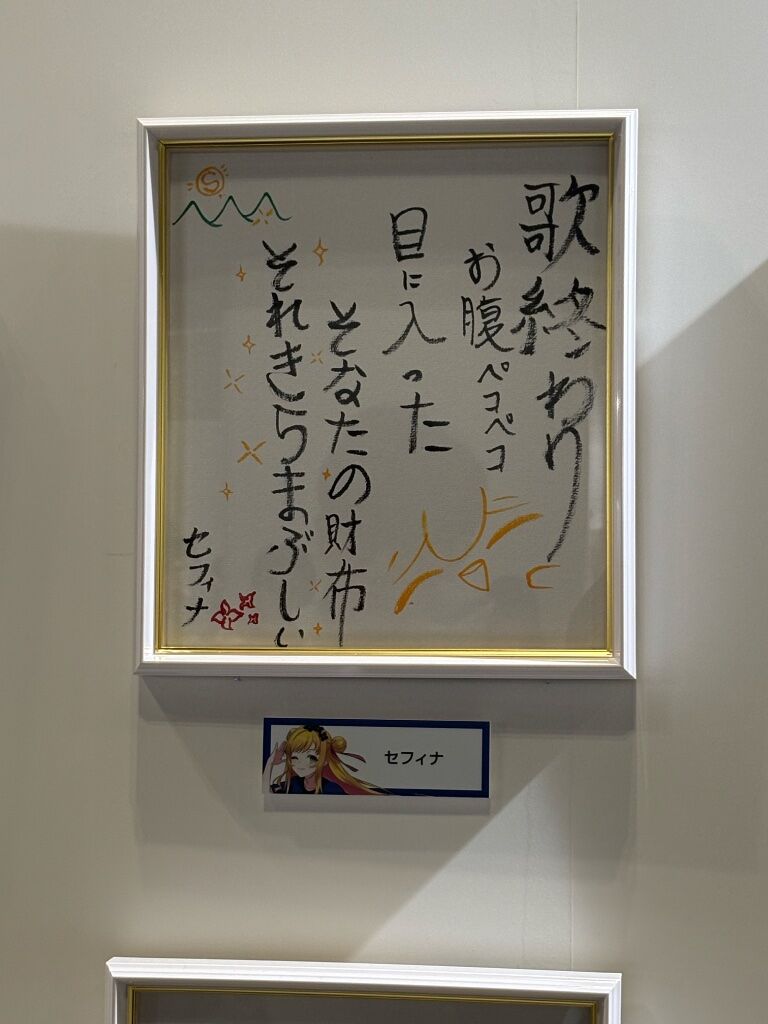 歌終わり
お腹ペコペコ
目に入った
そなたの財布
それきらまぶしい
セフィナ
S
セフィナ